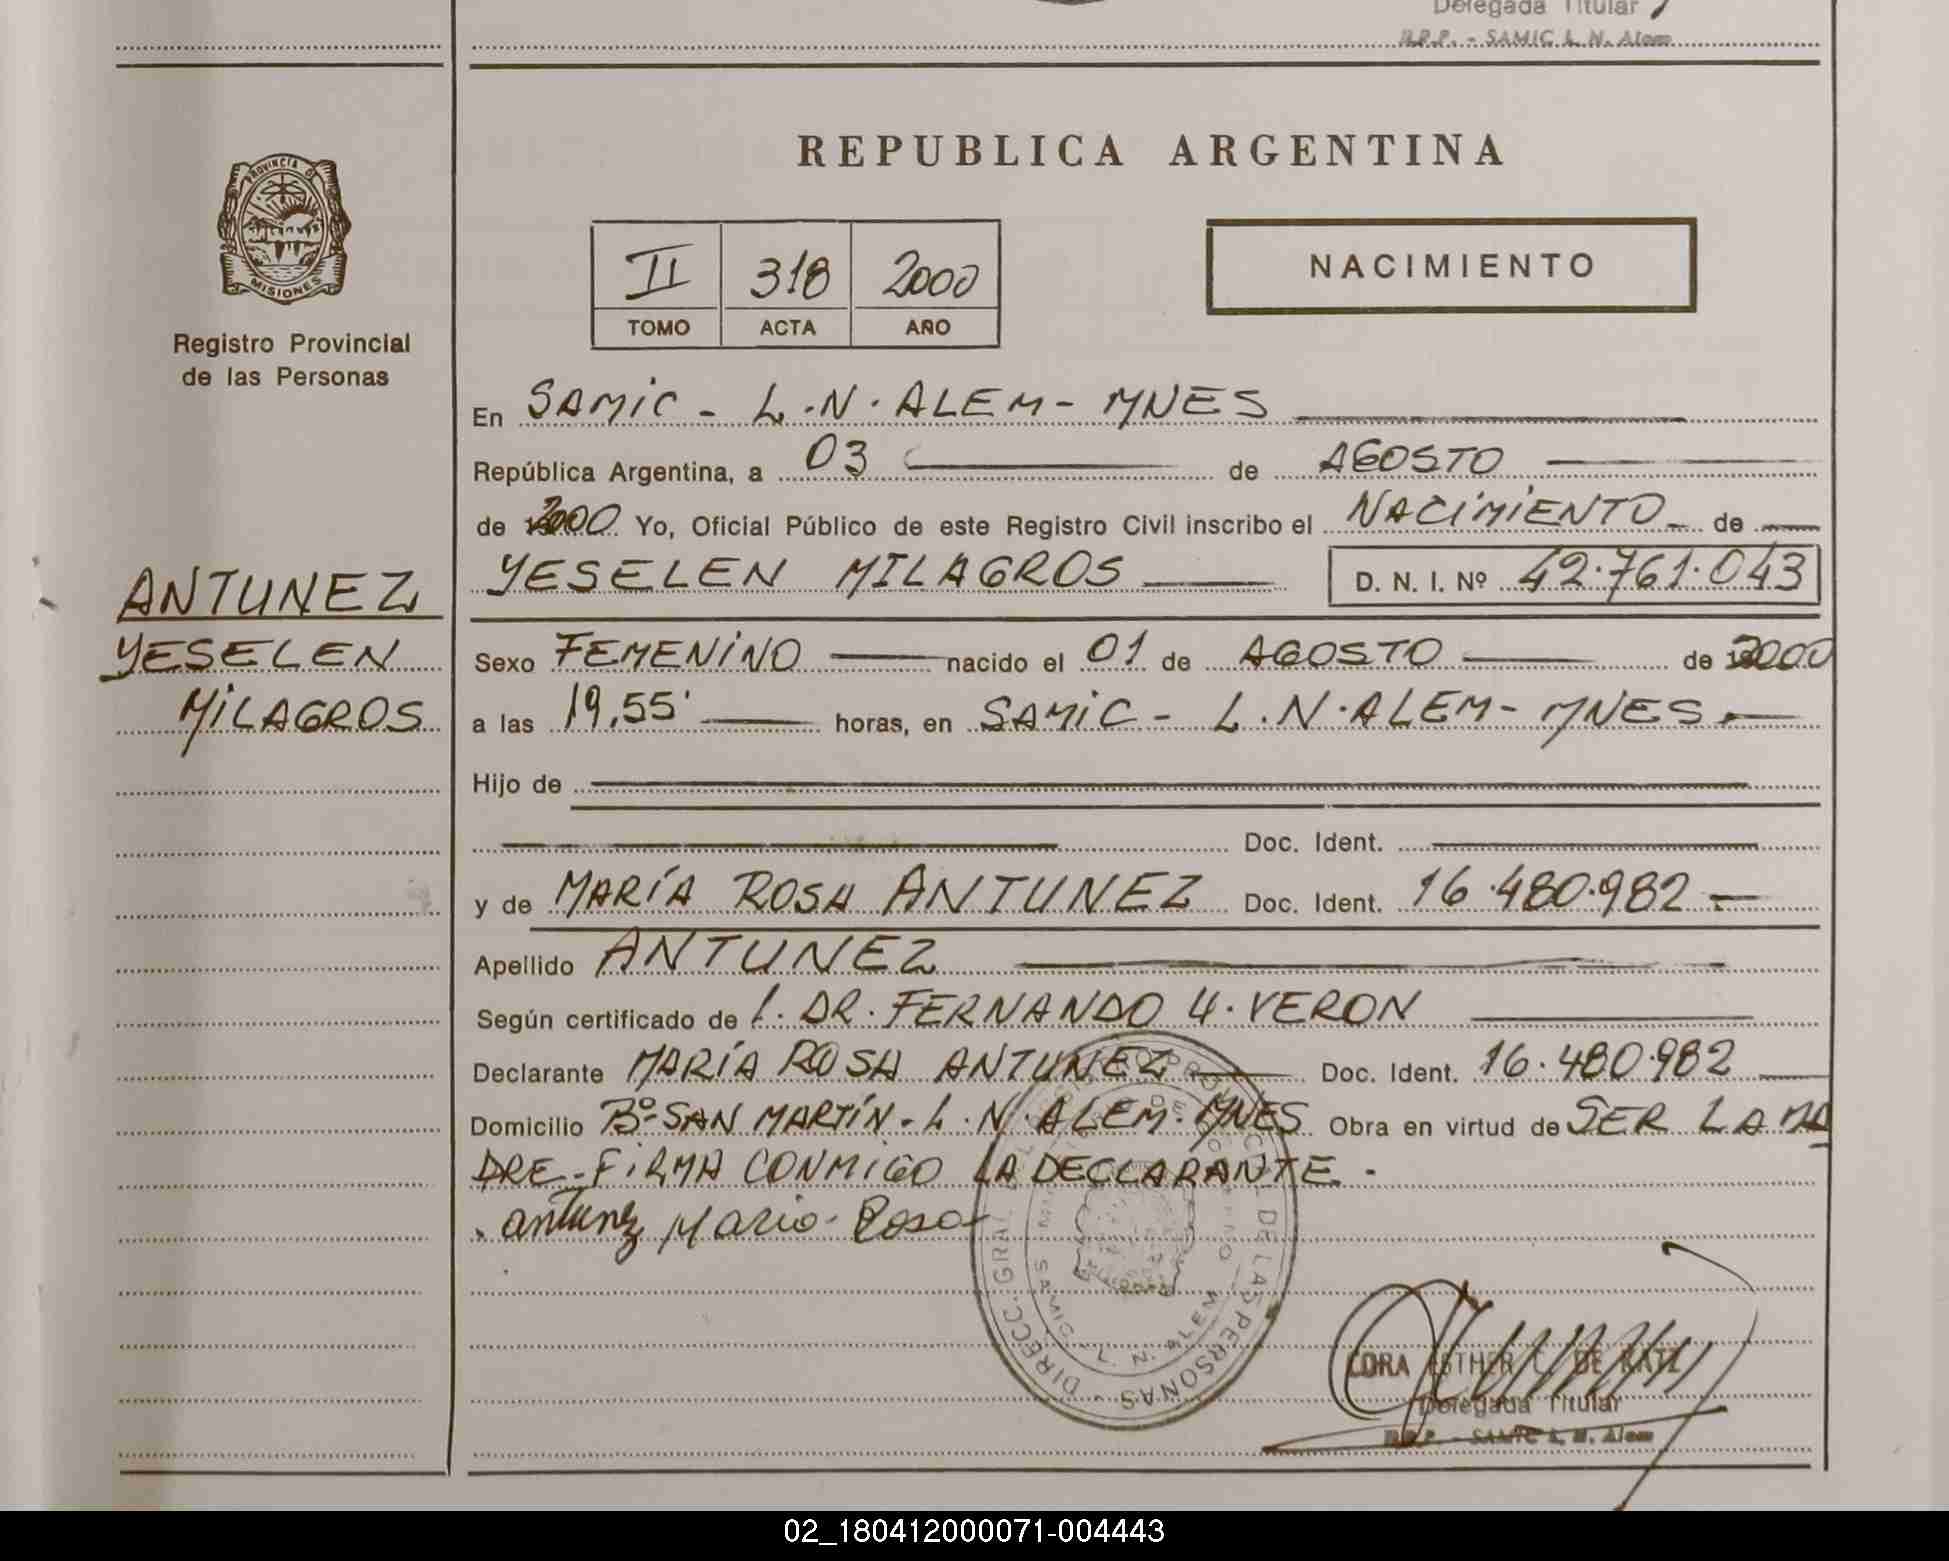 Delegada Titular
R.P.P. - SAMIC L. N. Alem
PROVINCIA DE
MISIONES
Registro Provincial
de las Personas
REPUBLICA ARGENTINA
II 318 2000
TOMO ACTA AÑO
NACIMIENTO
En SAMIC - L.N. ALEM - MNES
República Argentina, a 03 de AGOSTO
de 2000 Yo, Oficial Público de este Registro Civil inscribo el NACIMIENTO de
YESELEN MILAGROS D. N. I. Nº 42.761.043
ANTUNEZ
YESELEN
MILAGROS
Sexo FEMENINO nacido el 01 de AGOSTO de 2000
a las 19,55' horas, en SAMIC - L.N. ALEM - MNES.
Hijo de
Doc. Ident.
y de MARÍA ROSA ANTUNEZ Doc. Ident. 16.480.982
Apellido ANTUNEZ
Según certificado de l. DR. FERNANDO U. VERON
Declarante MARÍA ROSA ANTUNEZ Doc. Ident. 16.480.982
Domicilio Bº SAN MARTÍN - L.N. ALEM - MNES Obra en virtud de SER LA MA
DRE - FIRMA CONMIGO LA DECLARANTE.
antunez Maria Rosa
DIRECC. GRAL. DEL REGISTRO PROVINCIAL DE LAS PERSONAS
SAMIC - L. N. ALEM
ESTHER C. DE RATZ
Delegada Titular
R.P.P. - SAMIC L. N. Alem
02_180412000071-004443